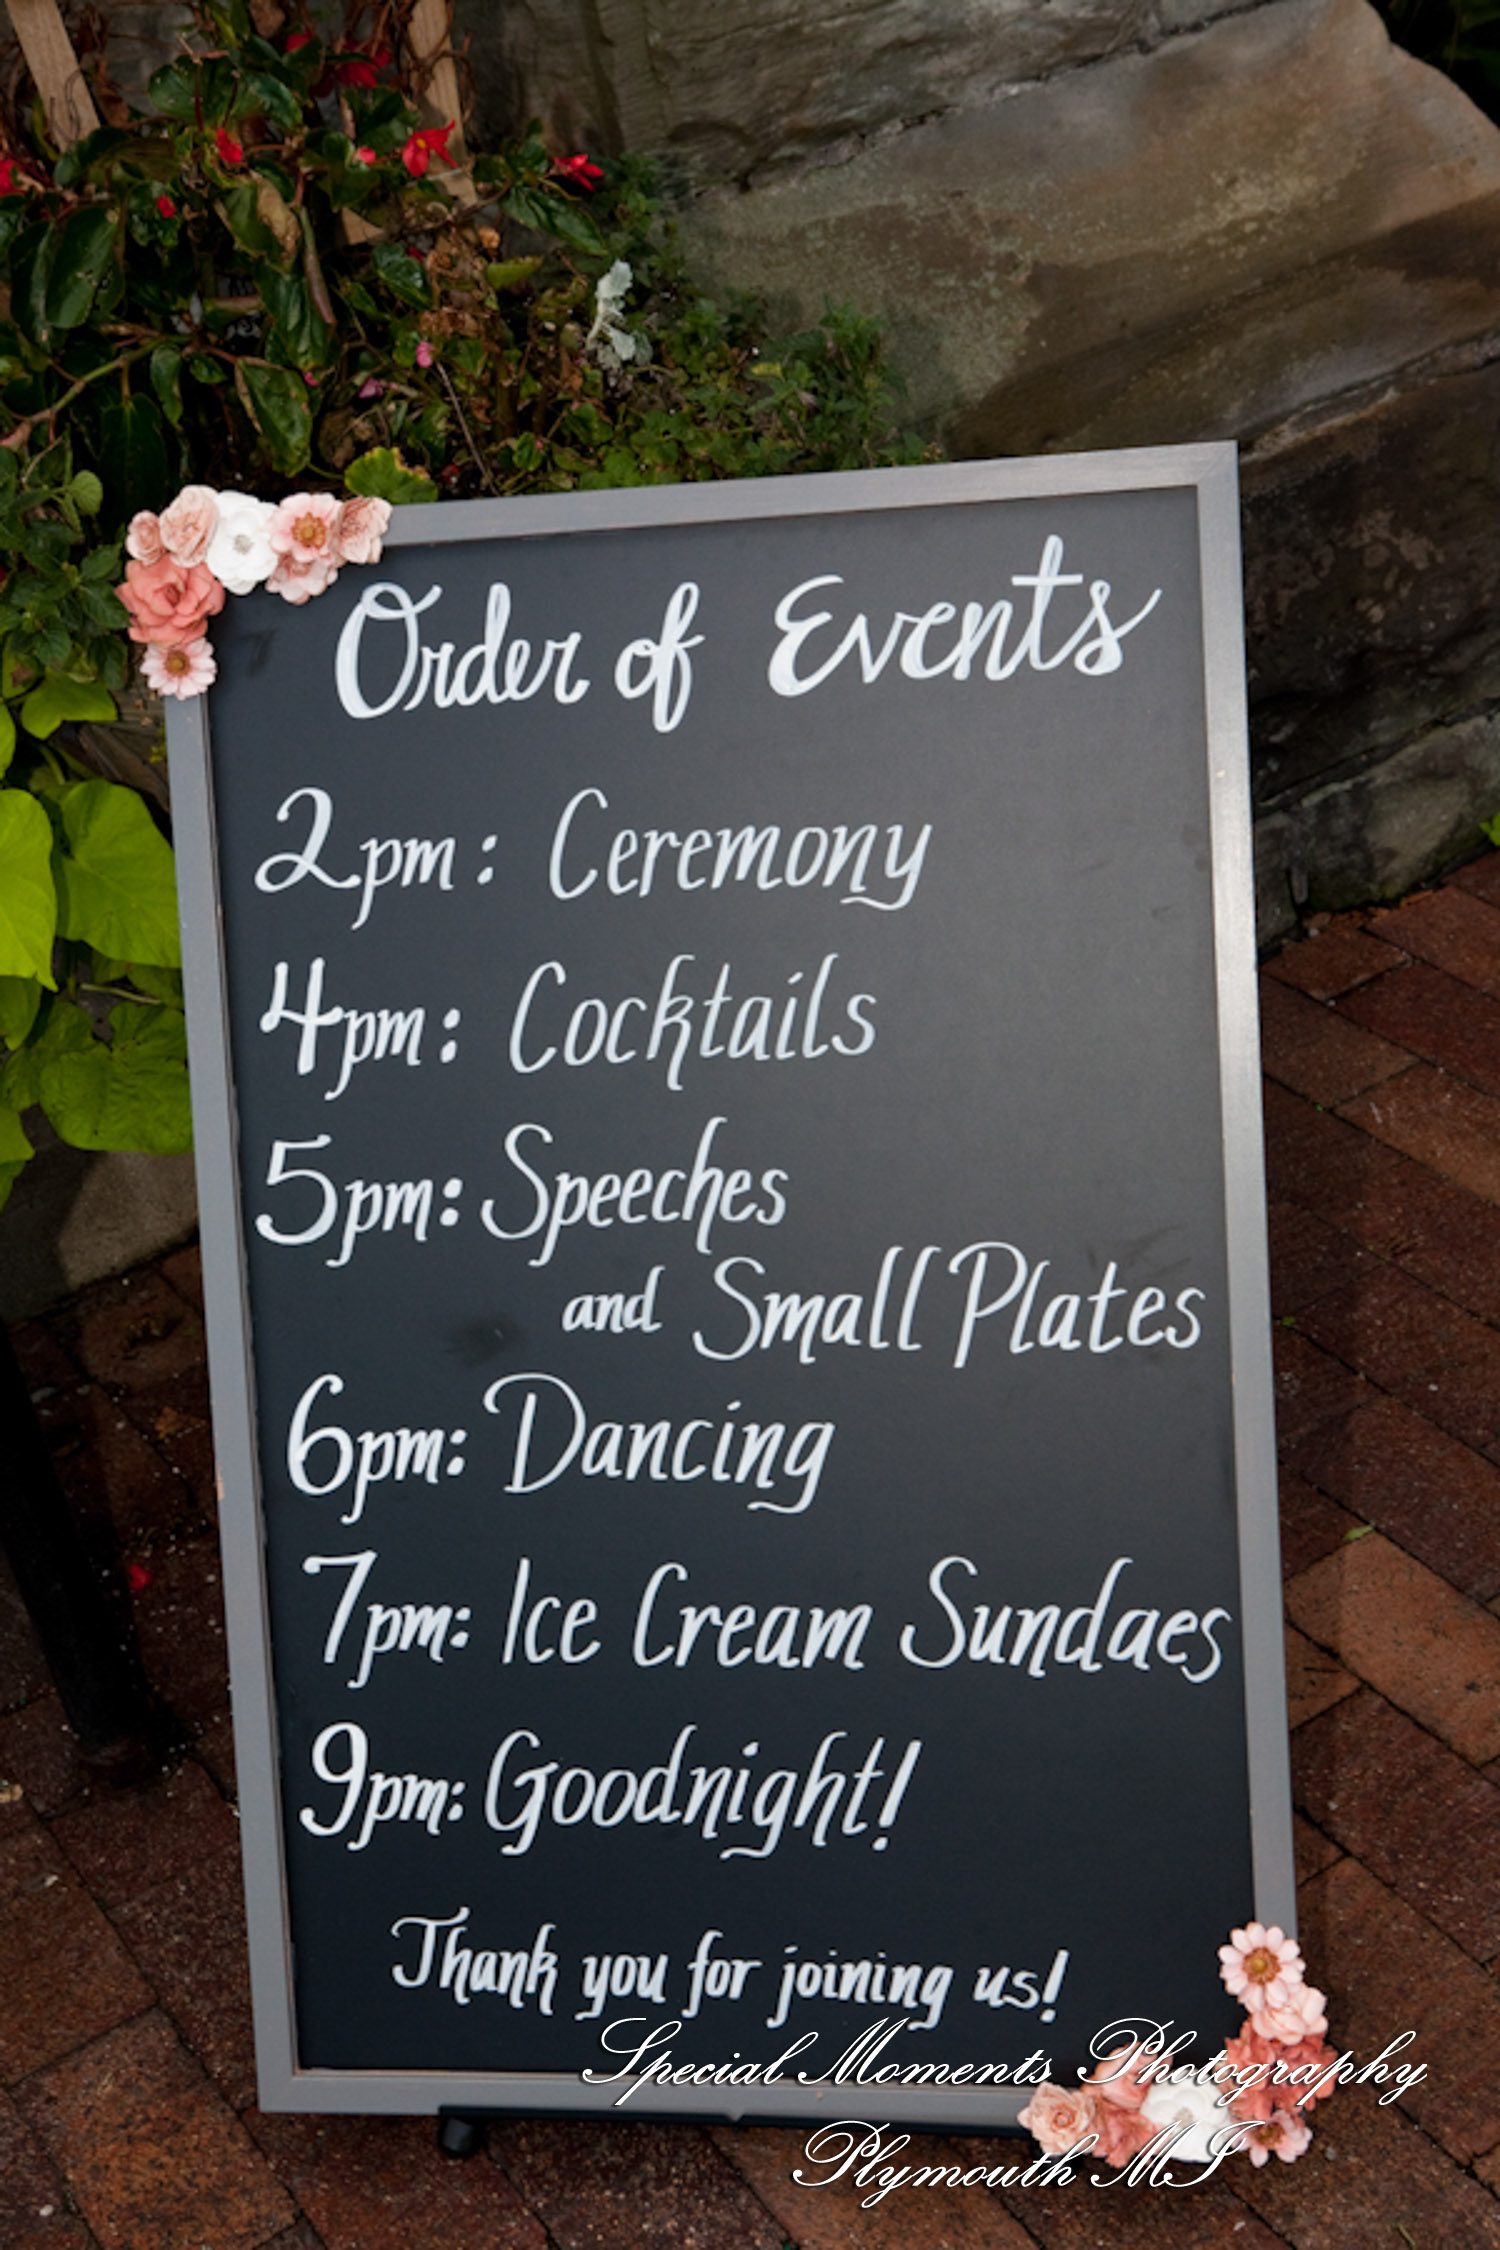 Order of Events
2pm: Ceremony
4pm: Cocktails
5pm: Speeches
and Small Plates
6pm: Dancing
7pm: Ice Cream Sundaes
9pm: Goodnight!
Thank you for joining us!
Special Moments Photography
Plymouth MI